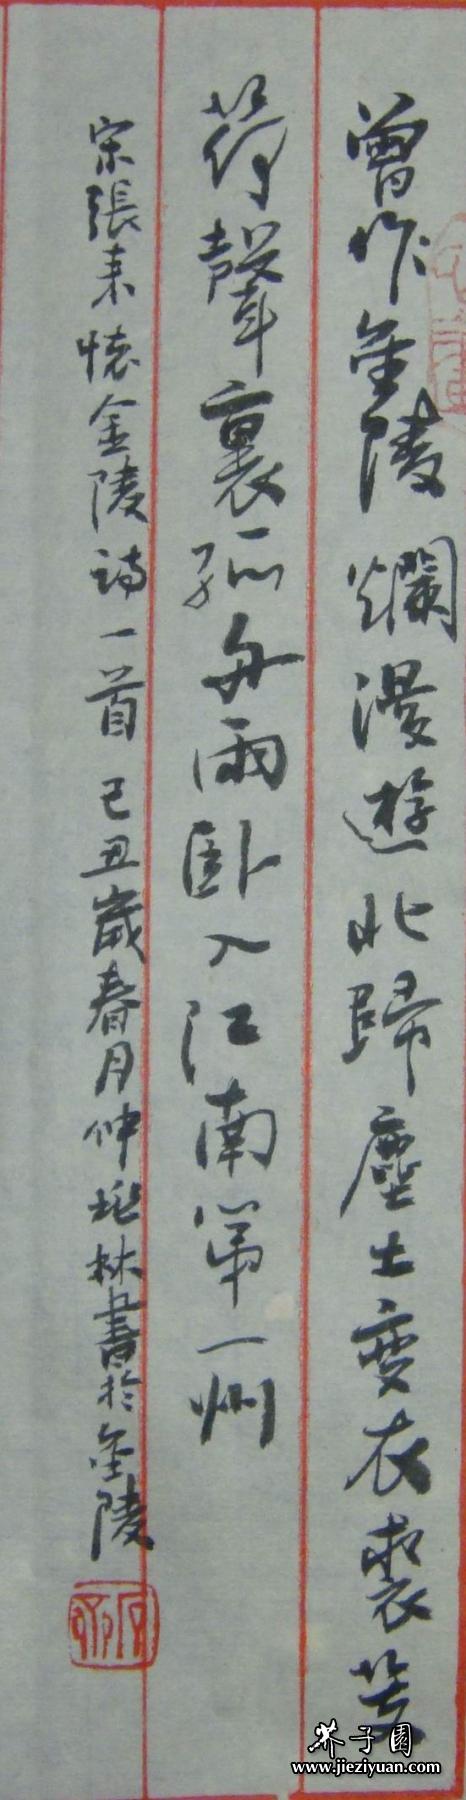 曾作金陵爛漫遊北歸塵土變衣裘芰
荷聲裏孤舟雨臥入江南第一州
宋張耒懷金陵詩一首己丑歲春月仲林書於金陵
芥子園
www.jieziyuan.com